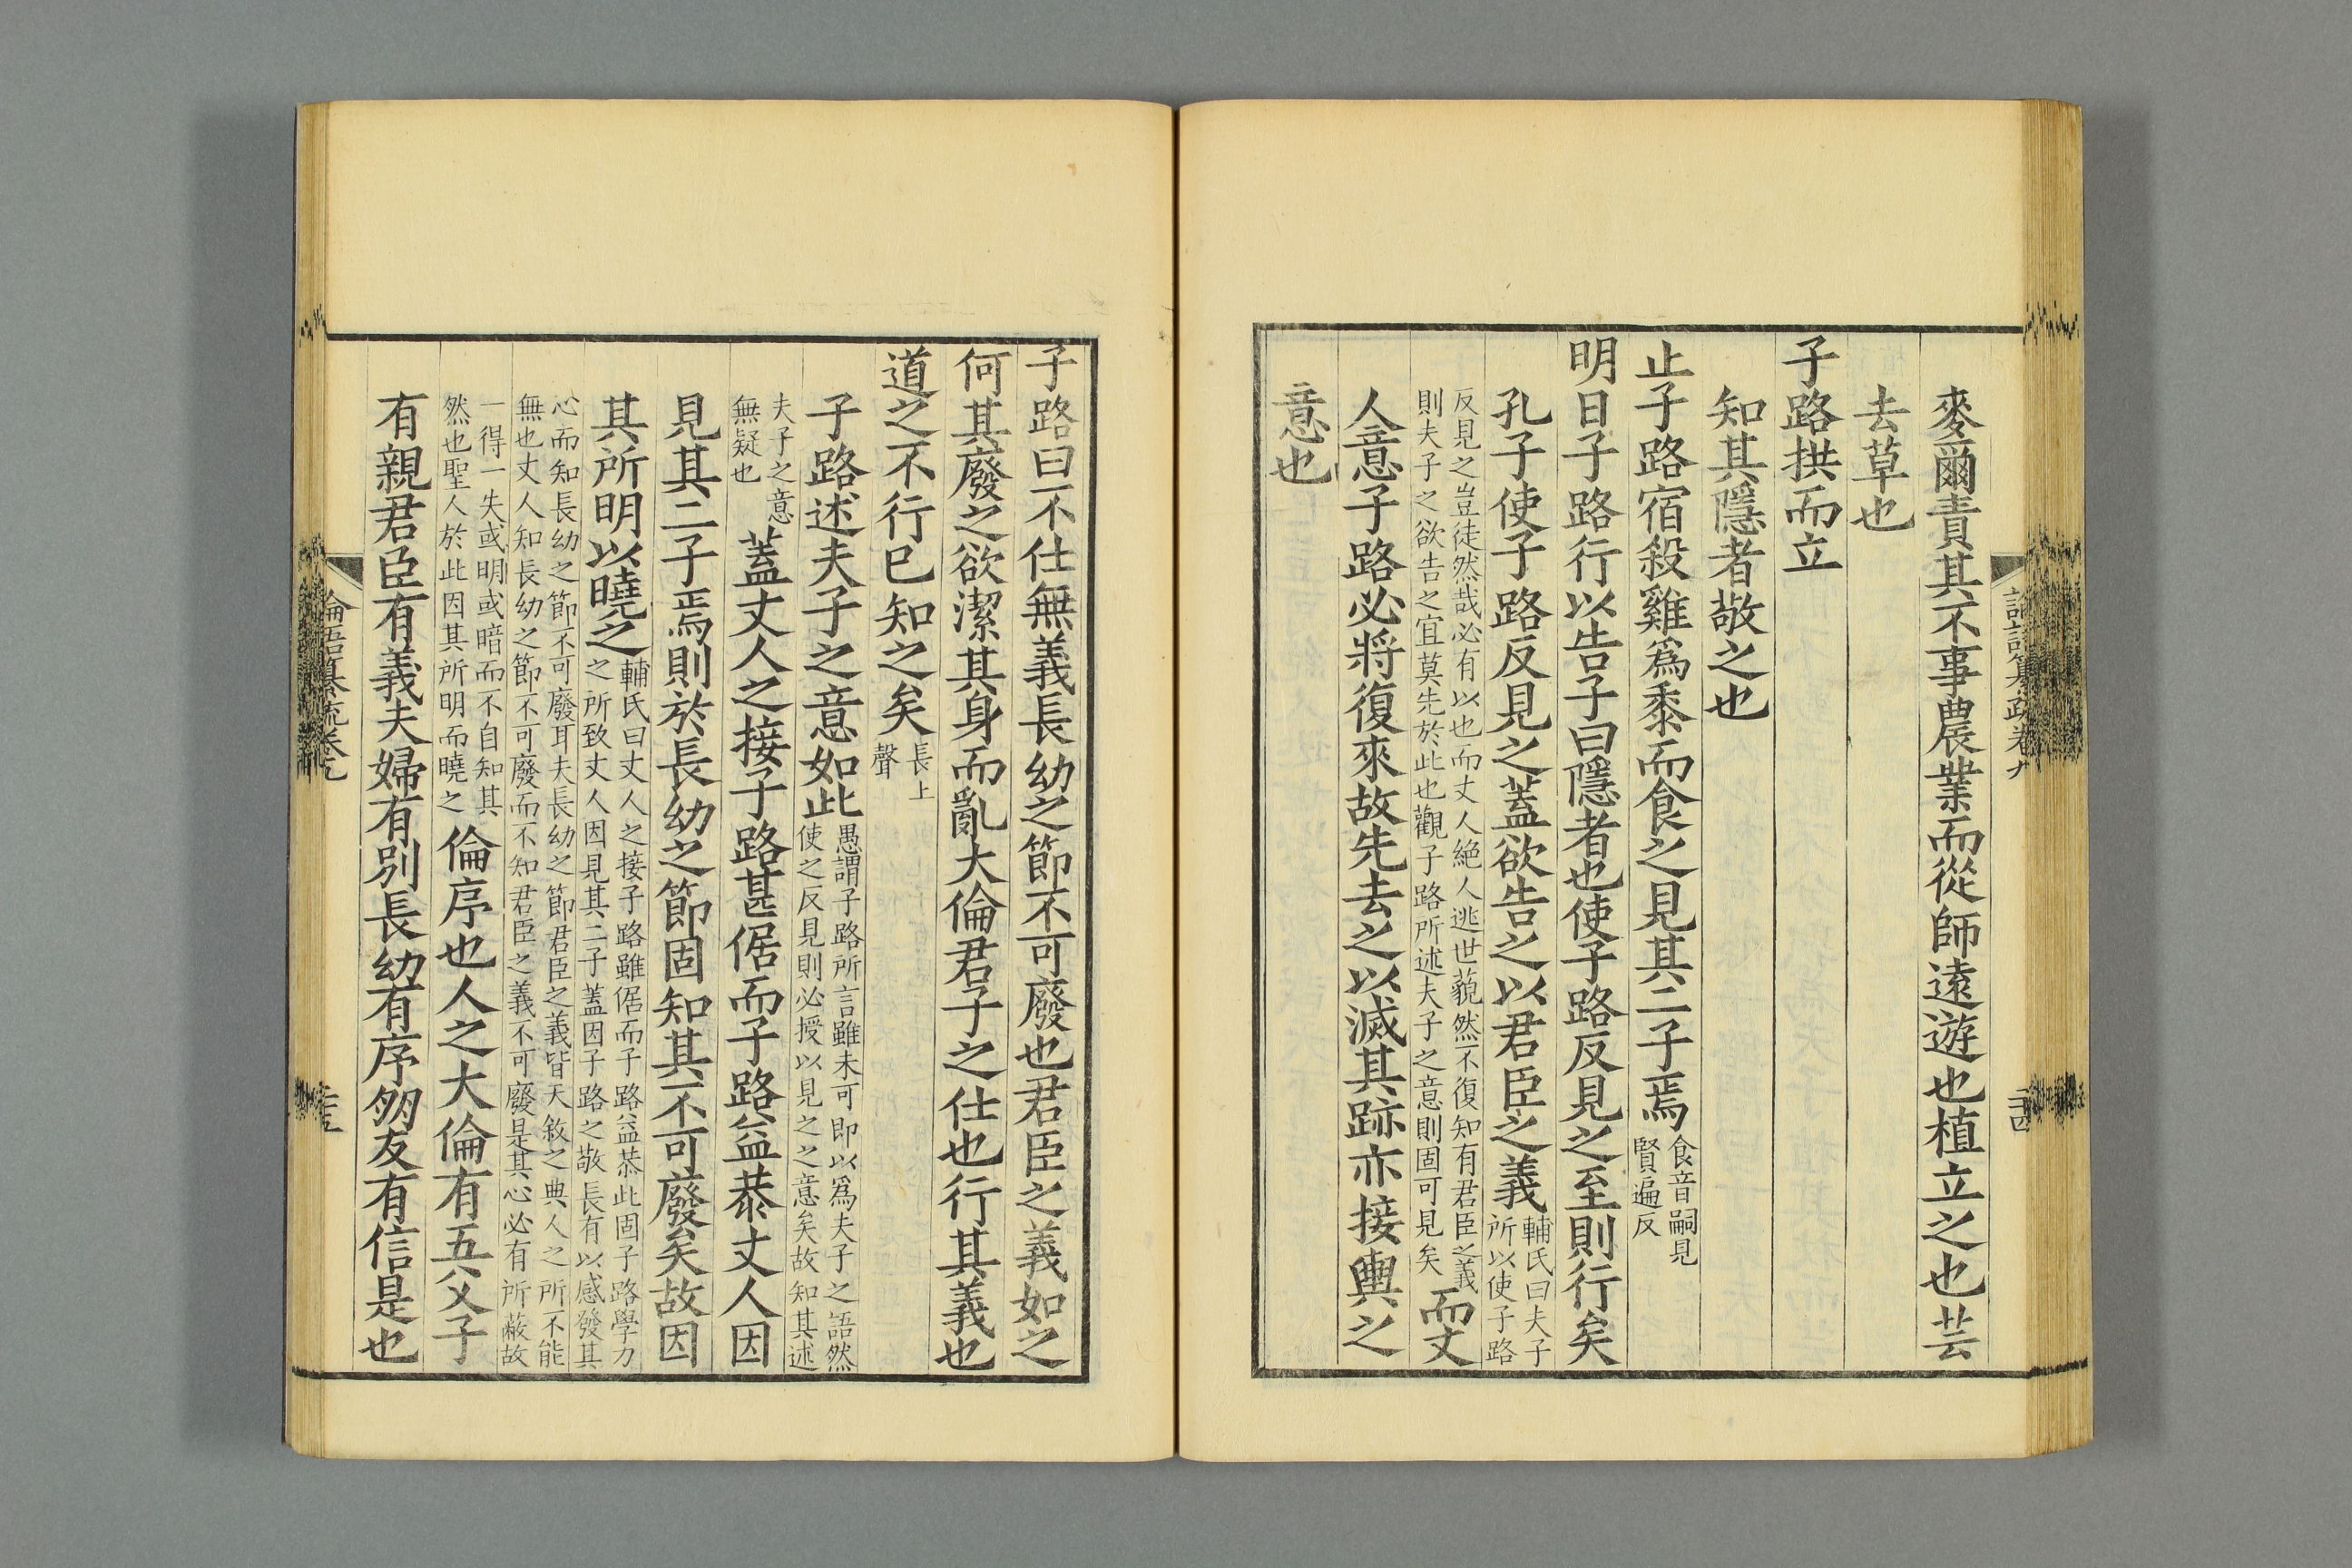 麥爾責其不事農業而從師遠遊也植立之也芸
去草也
子路拱而立
知其隱者敬之也
止子路宿殺雞爲黍而食之見其二子焉食音嗣見賢遍反
明日子路行以告子曰隱者也使子路反見之至則行矣
孔子使子路反見之蓋欲告之以君臣之義輔氏曰夫子所以使子路
反見之豈徒然哉必有以也而丈人絶人逃世藐然不復知有君臣之義則夫子之欲告之宜莫先於此也觀子路所述夫子之意則固可見矣而丈
人意子路必將復來故先去之以滅其跡亦接輿之
意也
子路曰不仕無義長幼之節不可廢也君臣之義如之
何其廢之欲潔其身而亂大倫君子之仕也行其義也
道之不行已知之矣長上聲
子路述夫子之意如此愚謂子路所言雖未可即以爲夫子之語然使之反見則必授以見之之意矣故知其述
夫子之意無疑也蓋丈人之接子路甚倨而子路益恭丈人因
見其二子焉則於長幼之節固知其不可廢矣故因
其所明以曉之輔氏曰丈人之接子路雖倨而子路益恭此固子路學力之所致丈人因見其二子蓋因子路之敬長有以感發其
心而知長幼之節不可廢耳夫長幼之節君臣之義皆天敘之典人之所不能無也丈人知長幼之節不可廢而不知君臣之義不可廢是其心必有所蔽故
一得一失或明或暗而不自知其然也聖人於此因其所明而曉之倫序也人之大倫有五父子
有親君臣有義夫婦有別長幼有序朋友有信是也